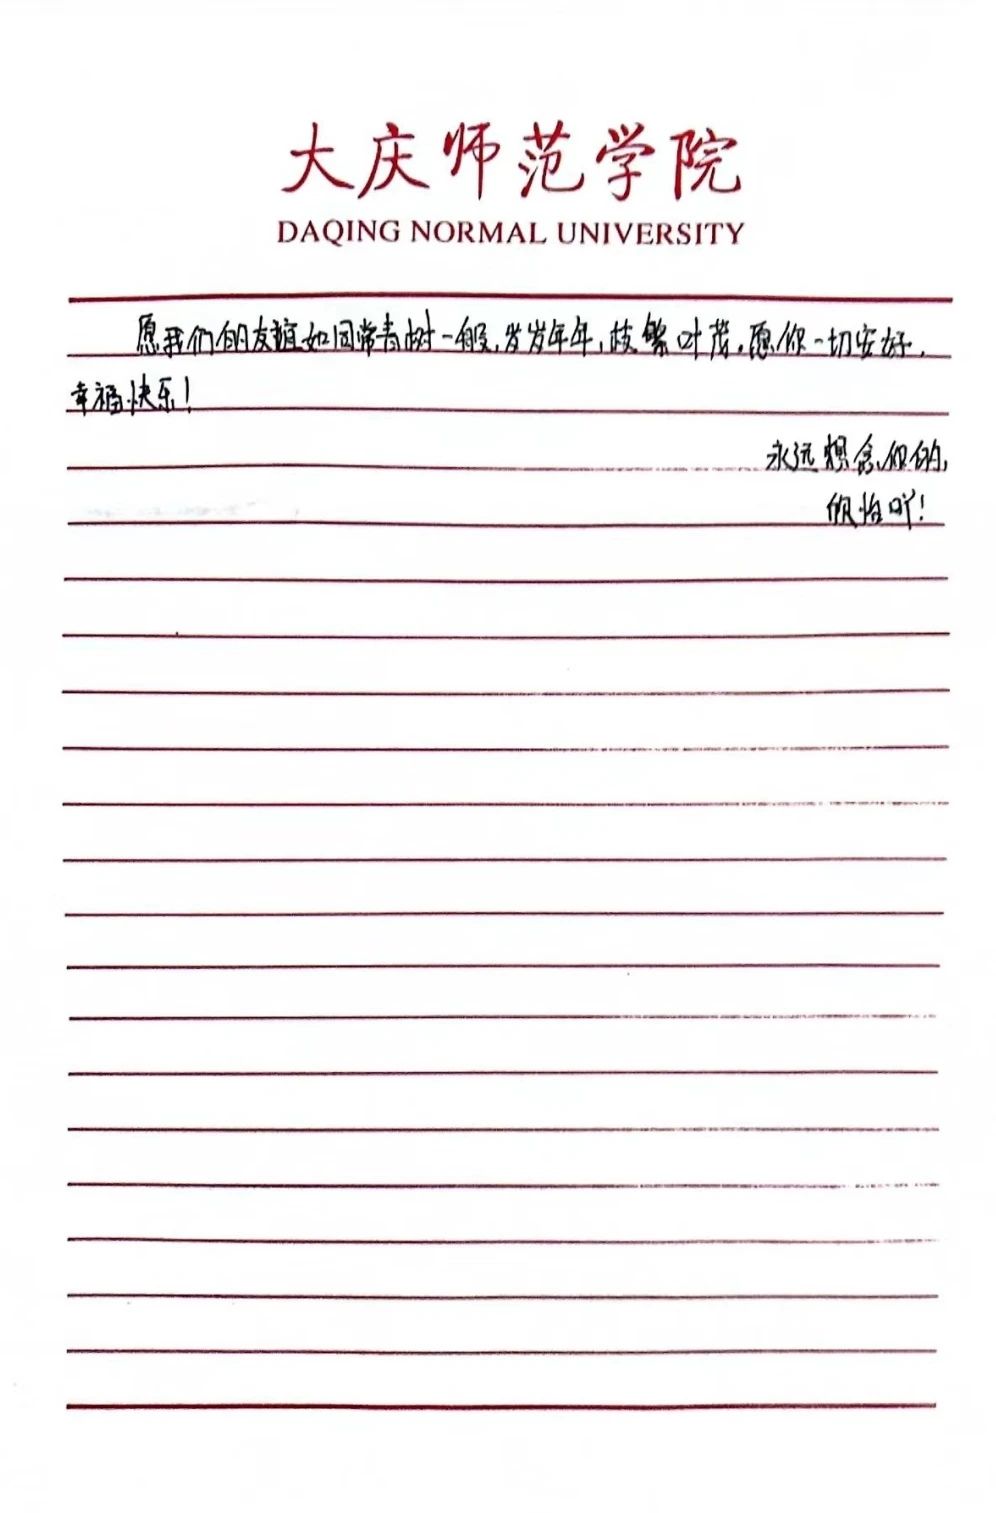 大庆师范学院
DAQING NORMAL UNIVERSITY
愿我们的友谊如同常青树一般,岁岁年年,枝繁叶茂。愿你一切安好,
幸福快乐!
永远想念你的,
怡吖!